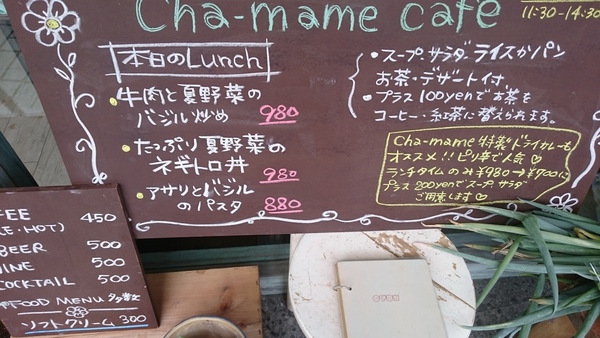 Cha-mame cafe
11:30-14:30
本日のLunch
・牛肉と夏野菜の
バジル炒め 980
・たっぷり夏野菜の
ネギトロ丼 980
・アサリとバジル
のパスタ 880
・スープ・サラダ・ライスかパン
お茶・デザート付
・プラス100yenでお茶を
コーヒー・紅茶に替えられます。
Cha-mame特製ドライカレーも
オススメ!!ピリ辛で人気♡
ランチタイムのみ¥980→¥700に
プラス200yenでスープ サラダ
ご用意します♡
450
・HOT)
BEER 500
500
COCKTAIL 500
FOOD MENU
ソフトクリーム 300